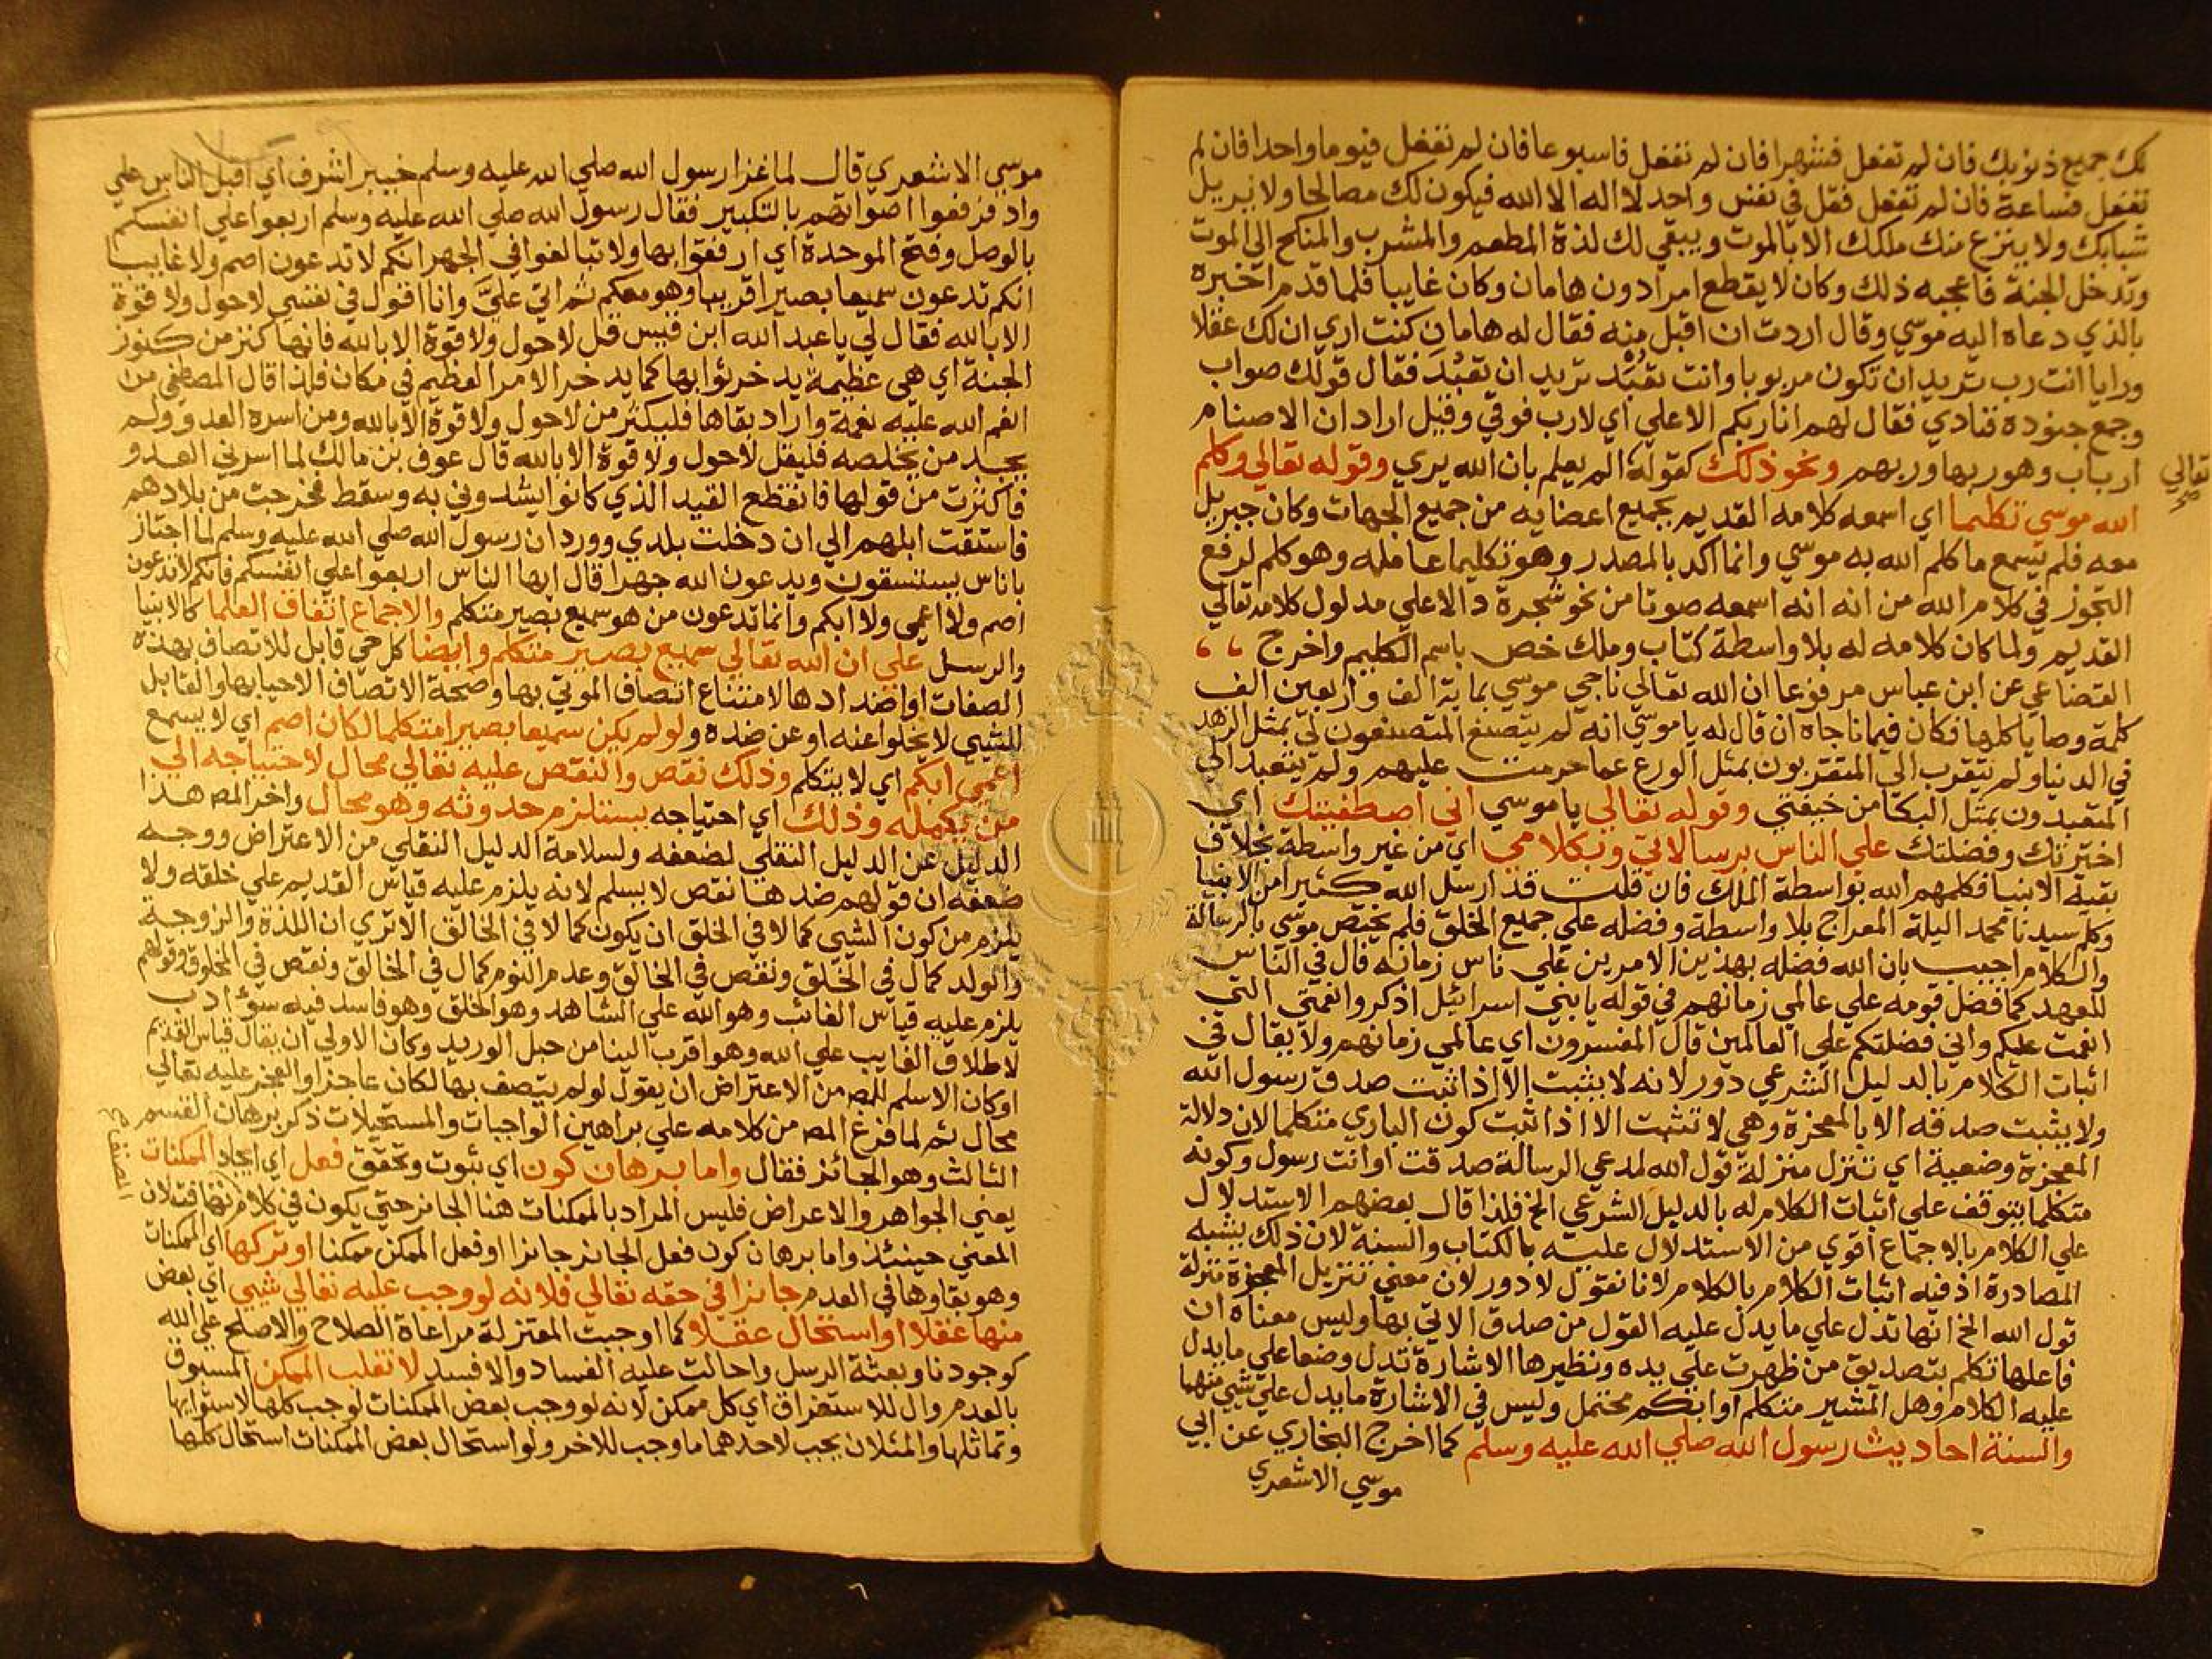 لك جميع ذنوبك فان لم تفعل فشهرا فان لم تفعل فاسبوعا فان لم تفعل فيوما واحدا فان لم
تفعل فساعة فان لم تفعل فقل في نفس واحد لا اله الا الله فيكون لك مصالحا ولا نزيل
شبابك ولا ينزع منك ملكك الا بالموت ويبقي لك لذة المطعم والمشرب والمنكح الي الموت
وتدخل الجنة فاعجبه ذلك وكان لا يقطع امرا دون هامان وكان غايبا فلما قدم اخبره
بالذي دعاه اليه موسي وقال اردت ان اقبل منه فقال له هامان كنت اري ان لك عقلا
ورايا انت رب تريد ان تكون مربوبا وانت تعبد تريد ان تعبد فقال قولك صواب
وجمع جنوده فنادي فقال لهم انا ربكم الاعلي اي لا رب فوقي وقيل اراد ان الاصنام
ارباب وهو ربها وربهم ونحو ذلك كقوله الم يعلم بان الله يري وقوله تعالي وكلم
تعالي صح
الله موسي تكليما اي اسمعه كلامه القديم بجميع اعضايه من جميع الجهات وكان جبريل
معه فلم يسمع ما كلم الله به موسي وانما اكد بالمصدر وهو تكليما عامله وهو كلم لرفع
التجوز في كلام الله من انه اسمعه صوتا من نحو شجرة دالا علي مدلول كلامه تعالي
القديم ولما كان كلامه له بلا واسطة كتاب وملك خص باسم الكليم واخرج
القضاعي عن ابن عباس مرفوعا ان الله تعالي ناجي موسي بماية الف واربعين الف
كلمة وصايا كلها فكان فيما ناجاه ان قال له يا موسي انه لم يتصنع المتصنعون لي بمثل الزهد
في الدنيا ولم يتقرب الي المتقربون بمثل الورع عما حرمت عليهم ولم يتعبد الي
المتعبدون بمثل البكا من خيفتي وقوله تعالي يا موسي اني اصطفيتك اي
اخترتك وفضلتك علي الناس برسالاتي وبكلامي اي من غير واسطة بخلاف
بقية الانبيا فكلمهم الله بواسطة الملك فان قلت قد ارسل الله كثيرا من الانبيا
وكلم سيدنا محمد اليلة المعراج بلا واسطة وفضله علي جميع الخلق فلم يختص موسي بالرسالة
والكلام اجيب بان الله فضله بهذين الامرين علي ناس زمانه فال في الناس
للعهد كما فضل قومه علي عالمي زمانهم في قوله يا بني اسرائيل اذكروا نعمتي التي
انعمت عليكم واني فضلتكم علي العالمين قال المفسرون اي عالمي زمانهم ولا يقال في
اثبات الكلام بالدليل الشرعي دور لانه لا يثبت الا اذا ثبت صدق رسول الله
ولا يثبت صدقه الا بالمعجزة وهي لا تثبت الا اذا اثبت كون الباري متكلما لان دلالة
المعجزة وضعية اي تتنزل منزلة قول الله لمدعي الرسالة صدقت او انت رسول وكونه
متكلما يتوقف علي اثبات الكلام له بالدليل الشرعي الخ فلذا قال بعضهم الاستدلال
علي الكلام بالاجماع اقوي من الاستدلال عليه بالكتاب والسنة لان ذلك يشبه
المصادرة اذ فيه اثبات الكلام بالكلام لانا نقول لا دور لان معني تنزيل المعجزة منزلة
قول الله الخ انها تدل علي ما يدل عليه القول من صدق الاتي بها وليس معناه ان
فاعلها تكلم بتصديق من ظهرت علي يده ونظيرها الاشارة تدل وضعا علي ما يدل
عليه الكلام وهل المشير متكلم او ابكم محتمل وليس في الاشارة ما يدل علي شي منهما
والسنة احاديث رسول الله صلي الله عليه وسلم كما اخرج البخاري عن ابي
موسي الاشعري
موسي الاشعري قال لما غزا رسول الله صلي الله عليه وسلم خيبر اشرف اي اقبل الناس علي
واد فرفعوا اصواتهم بالتكبير فقال رسول الله صلي الله عليه وسلم اربعوا علي انفسكم
بالوصل وفتح الموحدة اي ارفقوا بها ولا تبالغوا في الجهر انكم لا تدعون اصم ولا غايبا
انكم تدعون سميعا بصيرا قريبا وهو معكم ثم اتي علي وانا اقول في نفسي لا حول ولا قوة
الا بالله فقال لي يا عبد الله ابن قيس قل لا حول ولا قوة الا بالله فانها كنز من كنوز
الجنة اي هي عظيمة يدخر ثوابها كما يدخر الامر العظيم في مكان فلذا قال المصطفي من
انعم الله عليه نعمة واراد بقاها فليكثر من لا حول ولا قوة الا بالله ومن اسره العدو ولم
يجد من يخلصه فليقل لا حول ولا قوة الا بالله قال عوف بن مالك لما اسرني العدو
فاكثرت من قولها فانقطع القيد الذي كانوا يشدوني به وسقط فخرجت من بلادهم
فاستقت ابلهم الي ان دخلت بلدي وورد ان رسول الله صلي الله عليه وسلم لما اجتاز
باناس يستسقون ويدعون الله جهرا قال ايها الناس اربعوا علي انفسكم فانكم لا تدعون
اصم ولا اعمي ولا ابكم وانما تدعون من هو سميع بصير متكلم والاجماع اتفاق العلما كالانبيا
والرسل علي ان الله تعالي سميع بصير متكلم وايضا كل حي قابل للاتصاف بهذه
الصفات او اضدادها لامتناع اتصاف الموتي بها وصحة الاتصاف الاحيا بها والقابل
للشيي لا يخلوا عنه او عن ضده ولو لم يكن سميعا بصيرا متكلما لكان اصم اي لا يسمع
اعمي ابكم اي لا يتكلم وذلك نقص والنقص عليه تعالي محال لاحتياجه الي
من يكمله وذلك اي احتياجه يستلزم حدوثه وهو محال واخر المص هذا
الدليل عن الدليل النقلي لضعفه ولسلامة الدليل النقلي من الاعتراض ووجه
ضعفه ان قولهم ضدها نقص لا يسلم لانه يلزم عليه قياس القديم علي خلقه ولا
يلزم من كون الشيي كمالا في الخلق ان يكون كمالا في الخالق الا تري ان اللذة والزوجة
والولد كمال في الخلق ونقص في الخالق وعدم النوم كمال في الخالق ونقص في المخلوق وقولهم
يلزم عليه قياس الغائب وهو الله علي الشاهد وهو الخلق وهو فاسد فيه سوء ادب
لاطلاق الغايب علي الله وهو اقرب الينا من حبل الوريد وكان الاولي ان يقال قياس القديم
اوكان الاسلم للمص من الاعتراض ان يقول لو لم يتصف بها لكان عاجزا والعجز عليه تعالي
محال ثم لما فرغ المص من كلامه علي براهين الواجبات والمستحيلات ذكر برهان القسم
الثالث وهو الجائز فقال واما برهان كون اي ثبوت وتحقق فعل اي ايجاد الممكنات
يعني الجواهر والاعراض فليس المراد بالممكنات هنا الجائز حتي يكون في كلام
المعني حينئذ واما برهان كون فعل الجائز جائزا او فعل الممكن ممكنا او تركها اي الممكنات
وهو بقاوها في العدم جائزا في حقه تعالي فلانه لو وجب عليه تعالي شيي اي بعض
منها عقلا او استحال عقلا كما اوجبت المعتزلة مراعاة الصلاح والاصلح علي الله
كوجودنا وبعثة الرسل واحالت عليه الفساد والافسد لانقلب الممكن المسبوق
بالعدم وال للاستغراق اي كل ممكن لانه لو وجب بعض الممكنات لوجب كلها لاستوايها
وتماثلها والمثلان يجب لاحدهما ما وجب للاخر ولو استحال بعض الممكنات استحال كلها